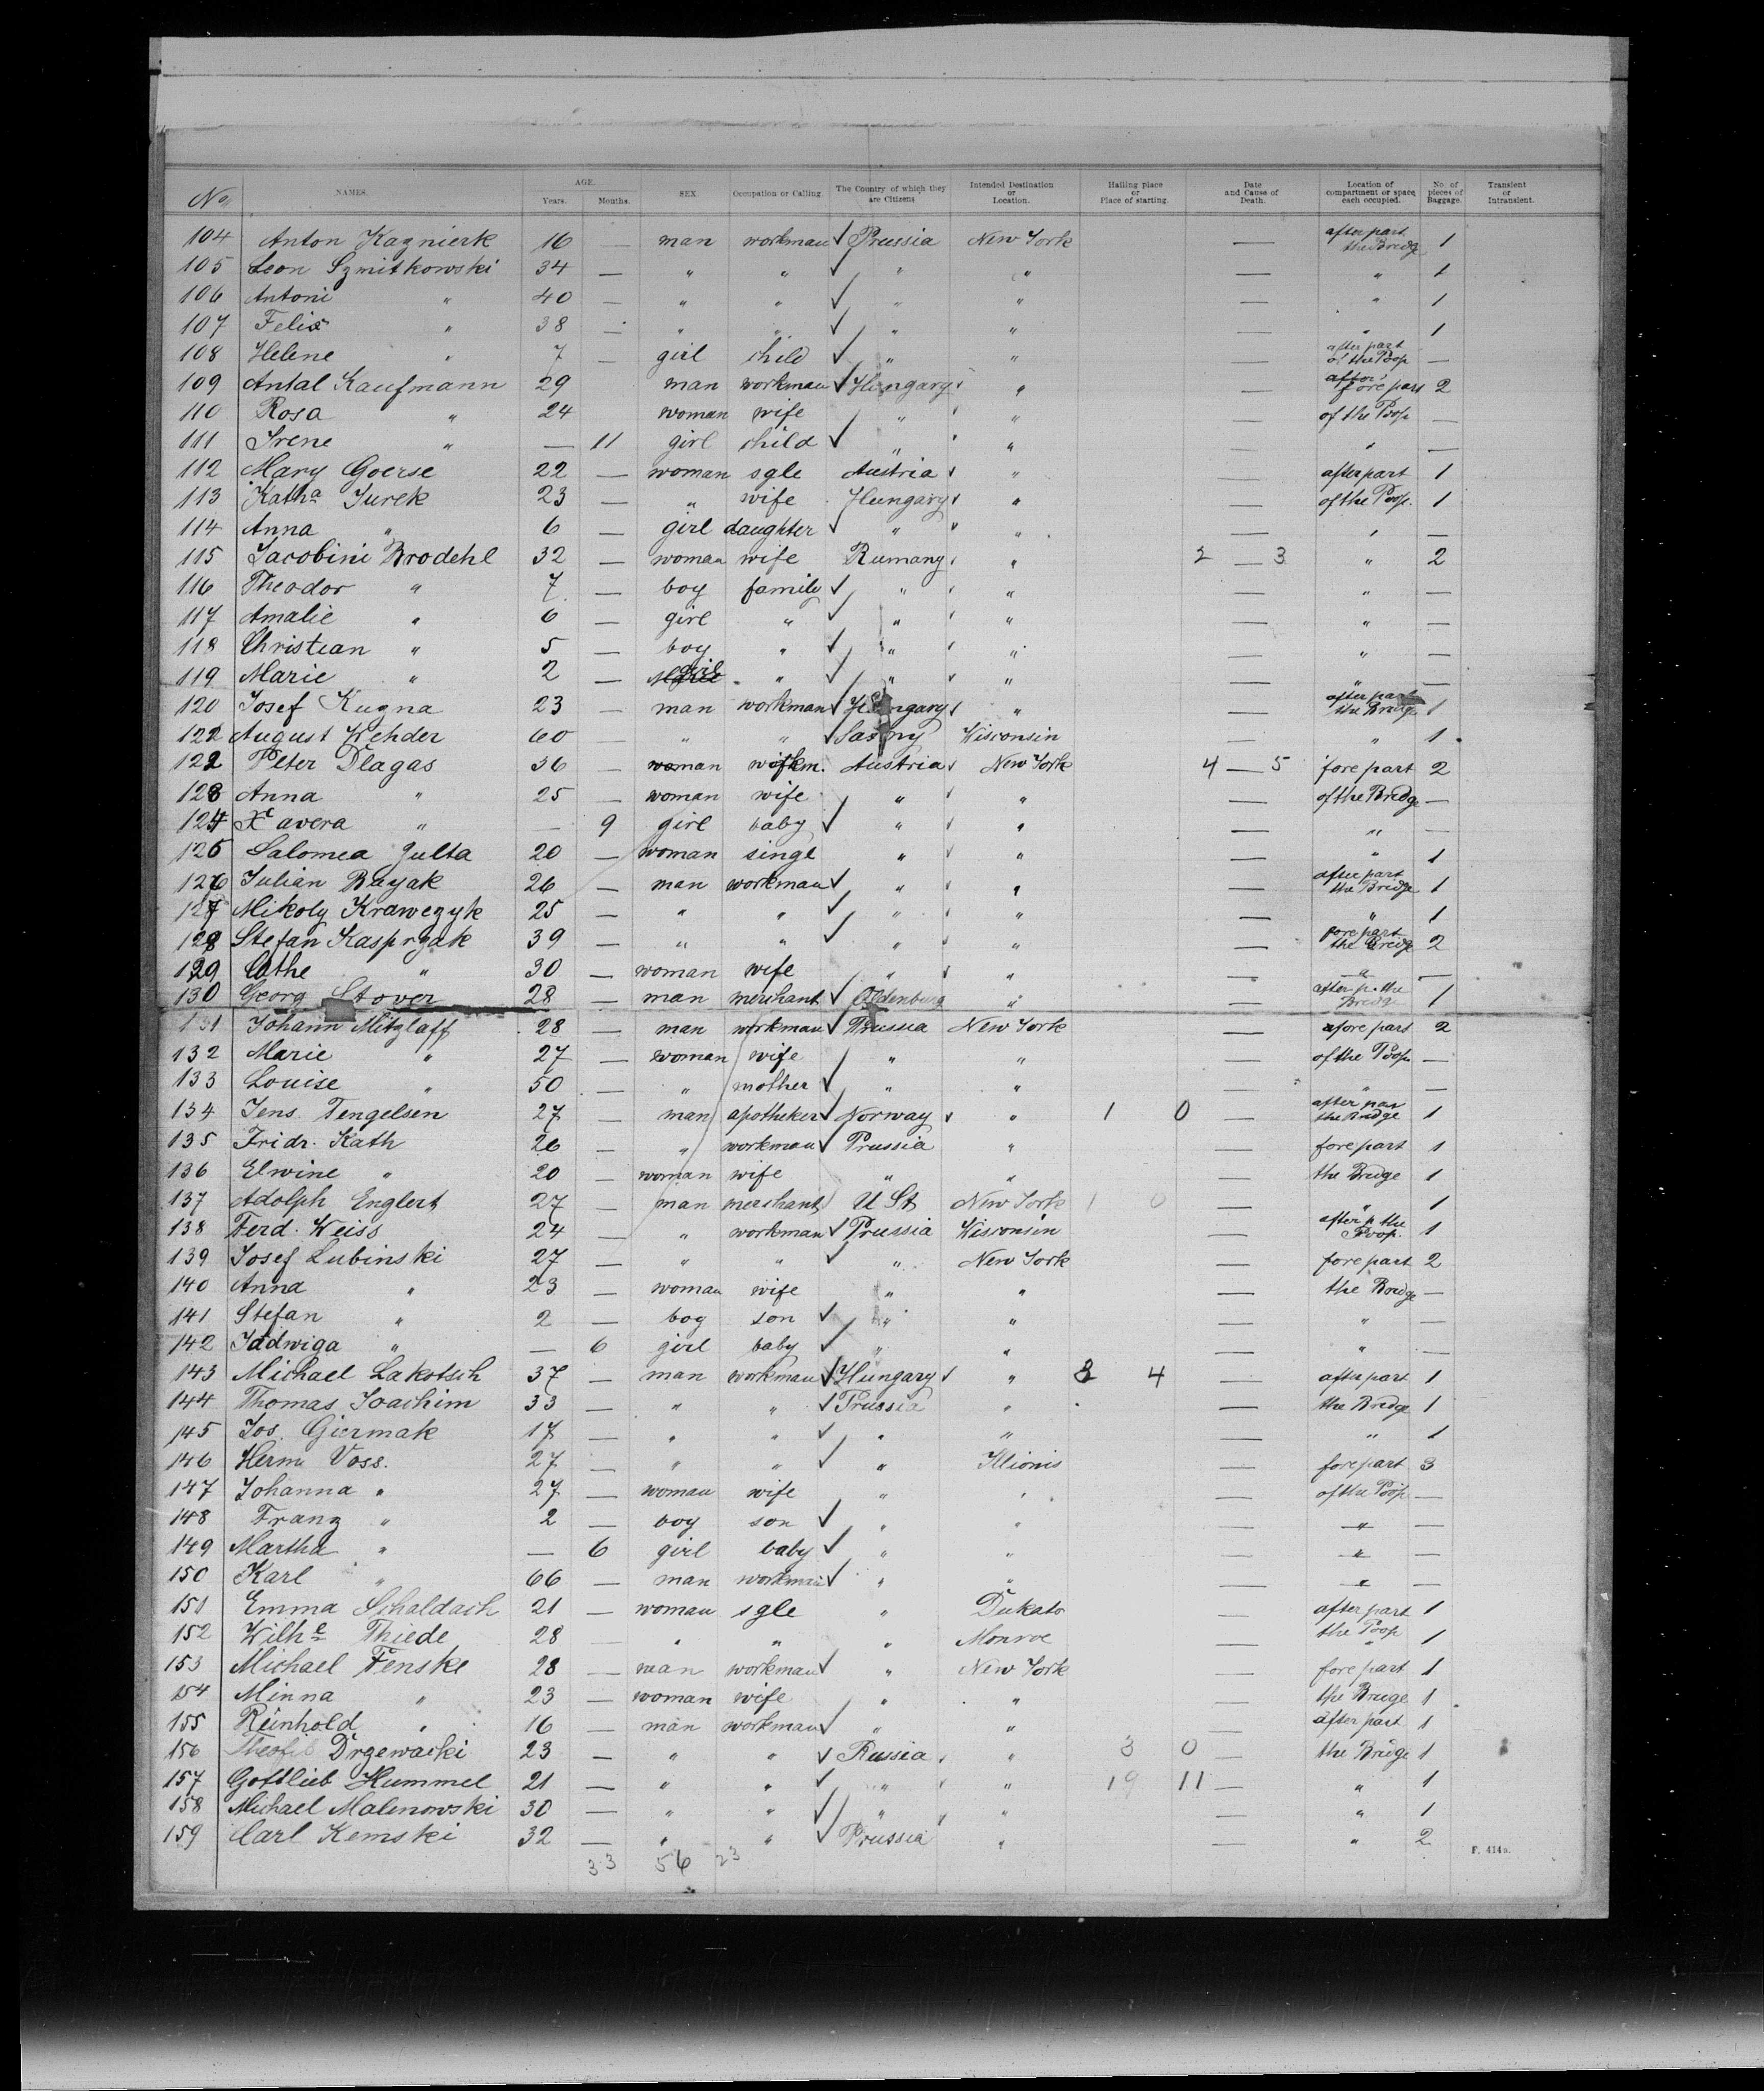 No. NAMES. AGE. Years. Months. SEX Occupation or Calling. The Country of which they are Citizens Intended Destination or Location. Hailing place or Place of starting. Date and Cause of Death. Location of compartment or space each occupied. No. of pieces of Baggage. Transient or Intransient.
104 Anton Kaznierk 16 — man workman ✓ Prussia New York — after part the Bredg 1
105 Leon Szmitkowski 34 — " " ✓ " " — " 1
106 Antoni " 40 — " " ✓ " " — " 1
107 Felix " 38 — " " ✓ " " — " 1
108 Helene " 7 — girl child ✓ " " — after part of the Poop —
109 Antal Kaufmann 29 man workman ✓ Hungary " — fore part 2
110 Rosa " 24 woman wife " " — of the Poop —
111 Irene " — 11 girl child ✓ " " — " —
112 Mary Goerse 22 — woman sgle Austria " — after part 1
113 Katha Jurek 23 — " wife Hungary " — of the Poop. 1
114 Anna " 6 — girl daughter ✓ " " — " —
115 Jacobini Brodehl 32 — woman wife Rumany " 2 — 3 " 2
116 Theodor " 7 — boy family ✓ " " — " —
117 Amalie " 6 — girl " ✓ " " — " —
118 Christian " 5 — boy " ✓ " " — " —
119 Marie " 2 — girl " ✓ " " — " —
120 Josef Kuzna 23 — man workman ✓ Hungary " — after part the Bredge 1
122 August Wehder 60 — " " ✓ Saxny Wisconsin — " 1
122 Peter Dlagas 36 — man workm. Austria New York 4 — 5 fore part 2
123 Anna " 25 — woman wife " " — of the Bredge —
124 Xavera " — 9 girl baby ✓ " " — " —
125 Salomea Julta 20 — woman singl " " — " 1
126 Julian Bayak 26 — man workman ✓ " " — after part the Bridge 1
127 Mikoly Krawczyk 25 — " " ✓ " " — " 1
128 Stefan Kasprzak 39 — " " ✓ " " — fore part the Bredge 2
129 Cathe " 30 — woman wife " " — " —
130 Georg Stover 28 — man merchant ✓ Oldenburg " — after p. the Bredge 1
131 Johann Mitzlaff 28 — man workman ✓ Prussia New York — afore part 2
132 Marie " 27 — woman wife " " — of the Poop —
133 Louise " 50 — " mother ✓ " " — " —
134 Jens Tengelsen 27 — man apotheker ✓ Norway " 1 0 — after par the Bridge 1
135 Fridr. Kath 26 — " workman ✓ Prussia " — fore part 1
136 Elwine " 20 — woman wife " " — the Bredge 1
137 Adolph Englert 27 — man merchant U St New York 1 0 " 1
138 Ferd. Weiss 24 — " workman ✓ Prussia Wisconsin — after p the Poop. 1
139 Josef Lubinski 27 — " " ✓ " New York — fore part 2
140 Anna " 23 — woman wife " " — the Bredge —
141 Stefan " 2 — boy son ✓ " " — " —
142 Jadwiga " — 6 girl baby ✓ " " — " —
143 Michael Lakotsch 37 — man workman ✓ Hungary " 3 4 — after part 1
144 Thomas Joachim 33 — " " ✓ Prussia " — the Bredge 1
145 Jos. Giermak 17 — " " ✓ " " — " 1
146 Herm Voss. 27 — " " ✓ " Illionis — fore part 3
147 Johanna " 27 — woman wife " " — of the Poop —
148 Franz " 2 — boy son ✓ " " — " —
149 Martha " — 6 girl baby ✓ " " — " —
150 Karl " 66 — man workman ✓ " " — " —
151 Emma Schaldach 21 — woman sgle " Dukato — after part 1
152 Wilhe Thiede 28 — " " " Monroe — the Poop 1
153 Michael Fenske 28 — man workman ✓ " New York — fore part 1
154 Minna " 23 — woman wife " " — the Bredge 1
155 Reinhold " 16 — man workman ✓ " " — after part 1
156 Theofil Drzewacki 23 — " " ✓ Russia " 3 0 — the Bridge 1
157 Gottlieb Hummel 21 — " " ✓ " " 19 11 — " 1
158 Michael Malinowski 30 — " " ✓ " " — " 1
159 Carl Kemski 32 — " " ✓ Prussia " — " 2
33 56 23
F. 414a.